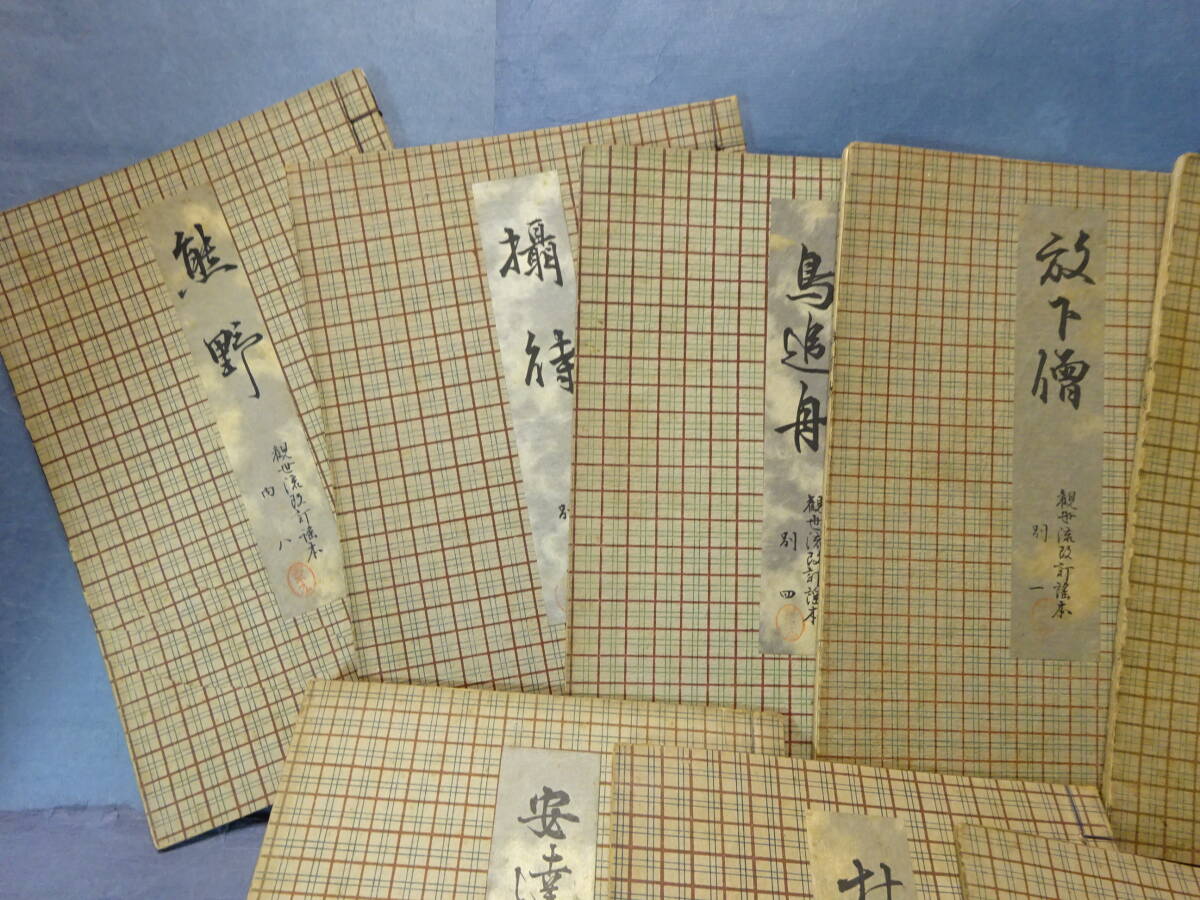 熊野
観世流改訂謡本
内 八
攝待
別
鳥追舟
観世流改訂謡本
別 四
放下僧
観世流改訂謡本
別 一
安達
杜